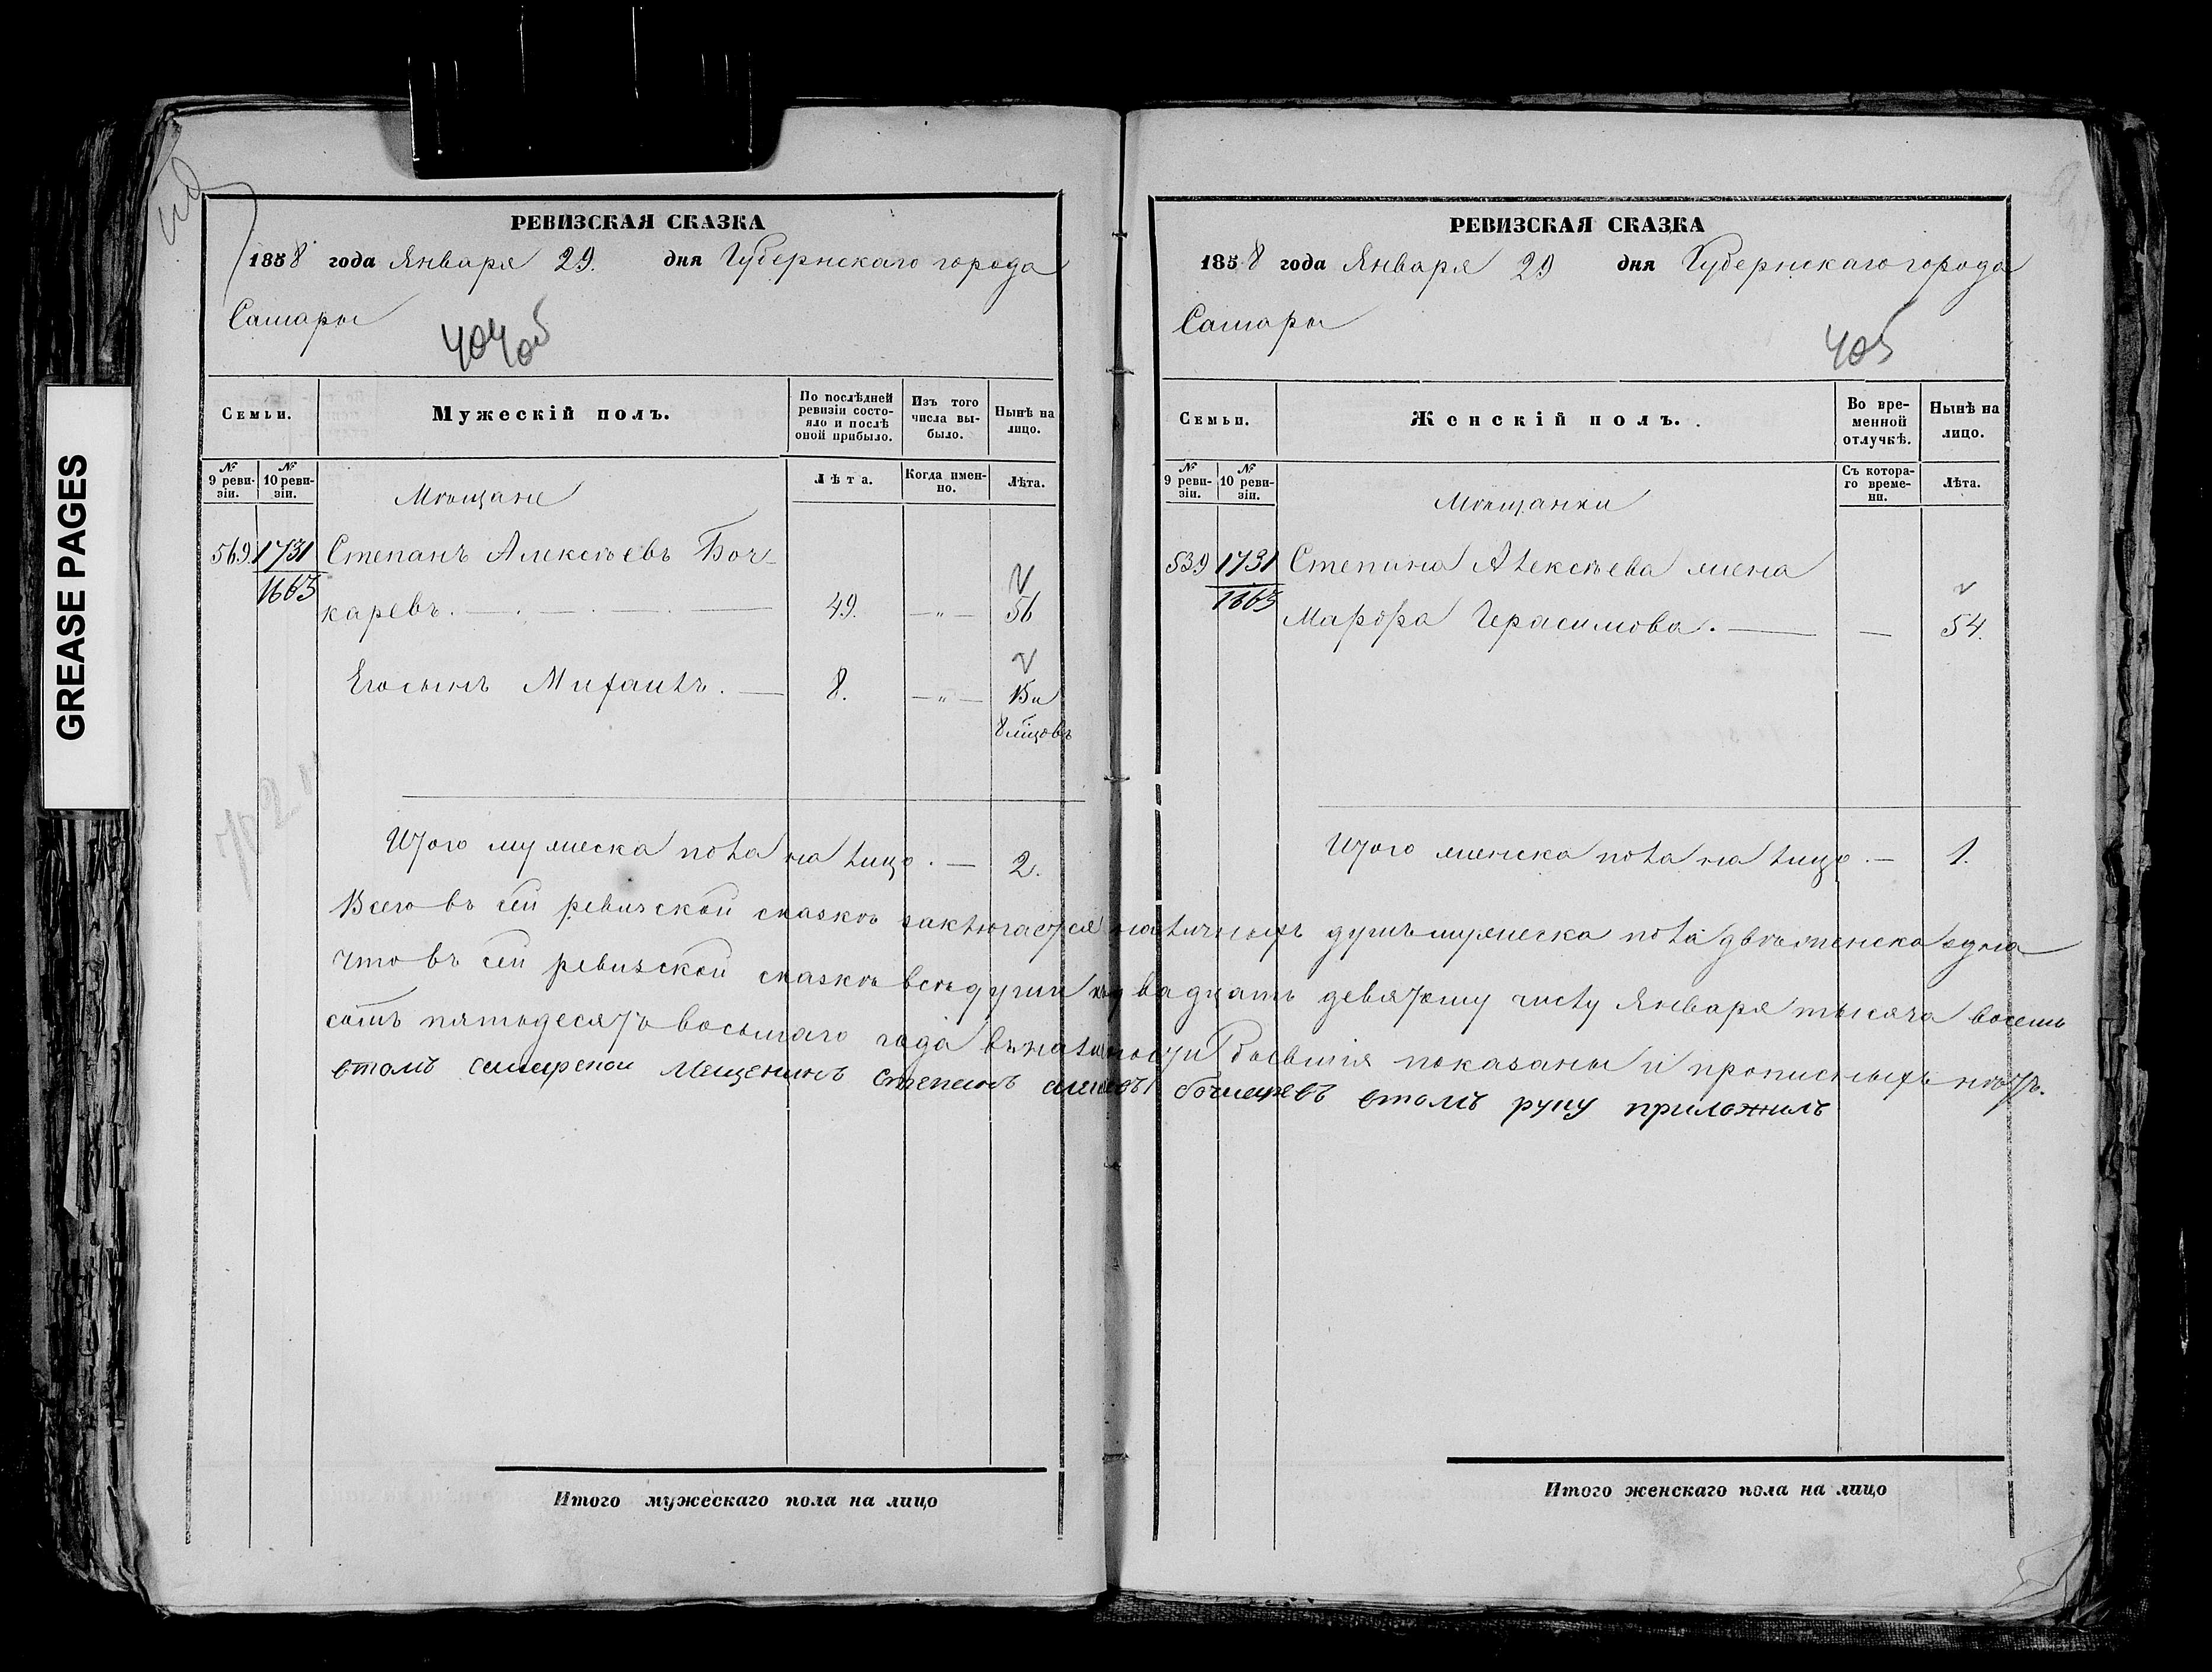 GREASE PAGES
РЕВИЗСКАЯ СКАЗКА
1858 года Января 29. дня Губернскаго города
Самары
404об
Семьи.
Мужескій полъ.
По послѣдней ревизіи состояло и послѣ оной прибыло.
Изъ того числа выбыло.
Нынѣ на лицо.
№ 9 ревизіи.
№ 10 ревизіи.
Лѣта.
Когда именно.
Лѣта.
Мѣщане
569. 1731 Степанъ Алексѣевъ Боч-
1663
каревъ. 49. — " — 56
Его сынъ Михаилъ. — 8. — " — 15 и
8 мцовъ
Итого мужеска пола на лицо. — 2.
РЕВИЗСКАЯ СКАЗКА
1858 года Января 29 дня Губернскаго города
Самары
405
Семьи.
Женскій полъ.
Во временной отлучкѣ.
Нынѣ на лицо.
№ 9 ревизіи.
№ 10 ревизіи.
Съ котораго времени.
Лѣта.
Мѣщанки
539 1731 Степана Алексѣева жена
1663
Марфа Герасимова. — — 54.
Итого женска пола на лицо. — 1.
Всего въ сей ревизской сказкѣ заключается наличныхъ душъ мужеска пола двѣ женска одна
что въ сей ревизской сказкѣ всѣ души къ двадцать девятому числу Января тысяча восемь
сотъ пятьдесятъ восьмаго года въ наличности бывшія показаны и прописныхъ нѣтъ.
втомъ самарской мещенинъ степанъ бочкаревъ втомъ руку приложилъ
Итого мужескаго пола на лицо
Итого женскаго пола на лицо